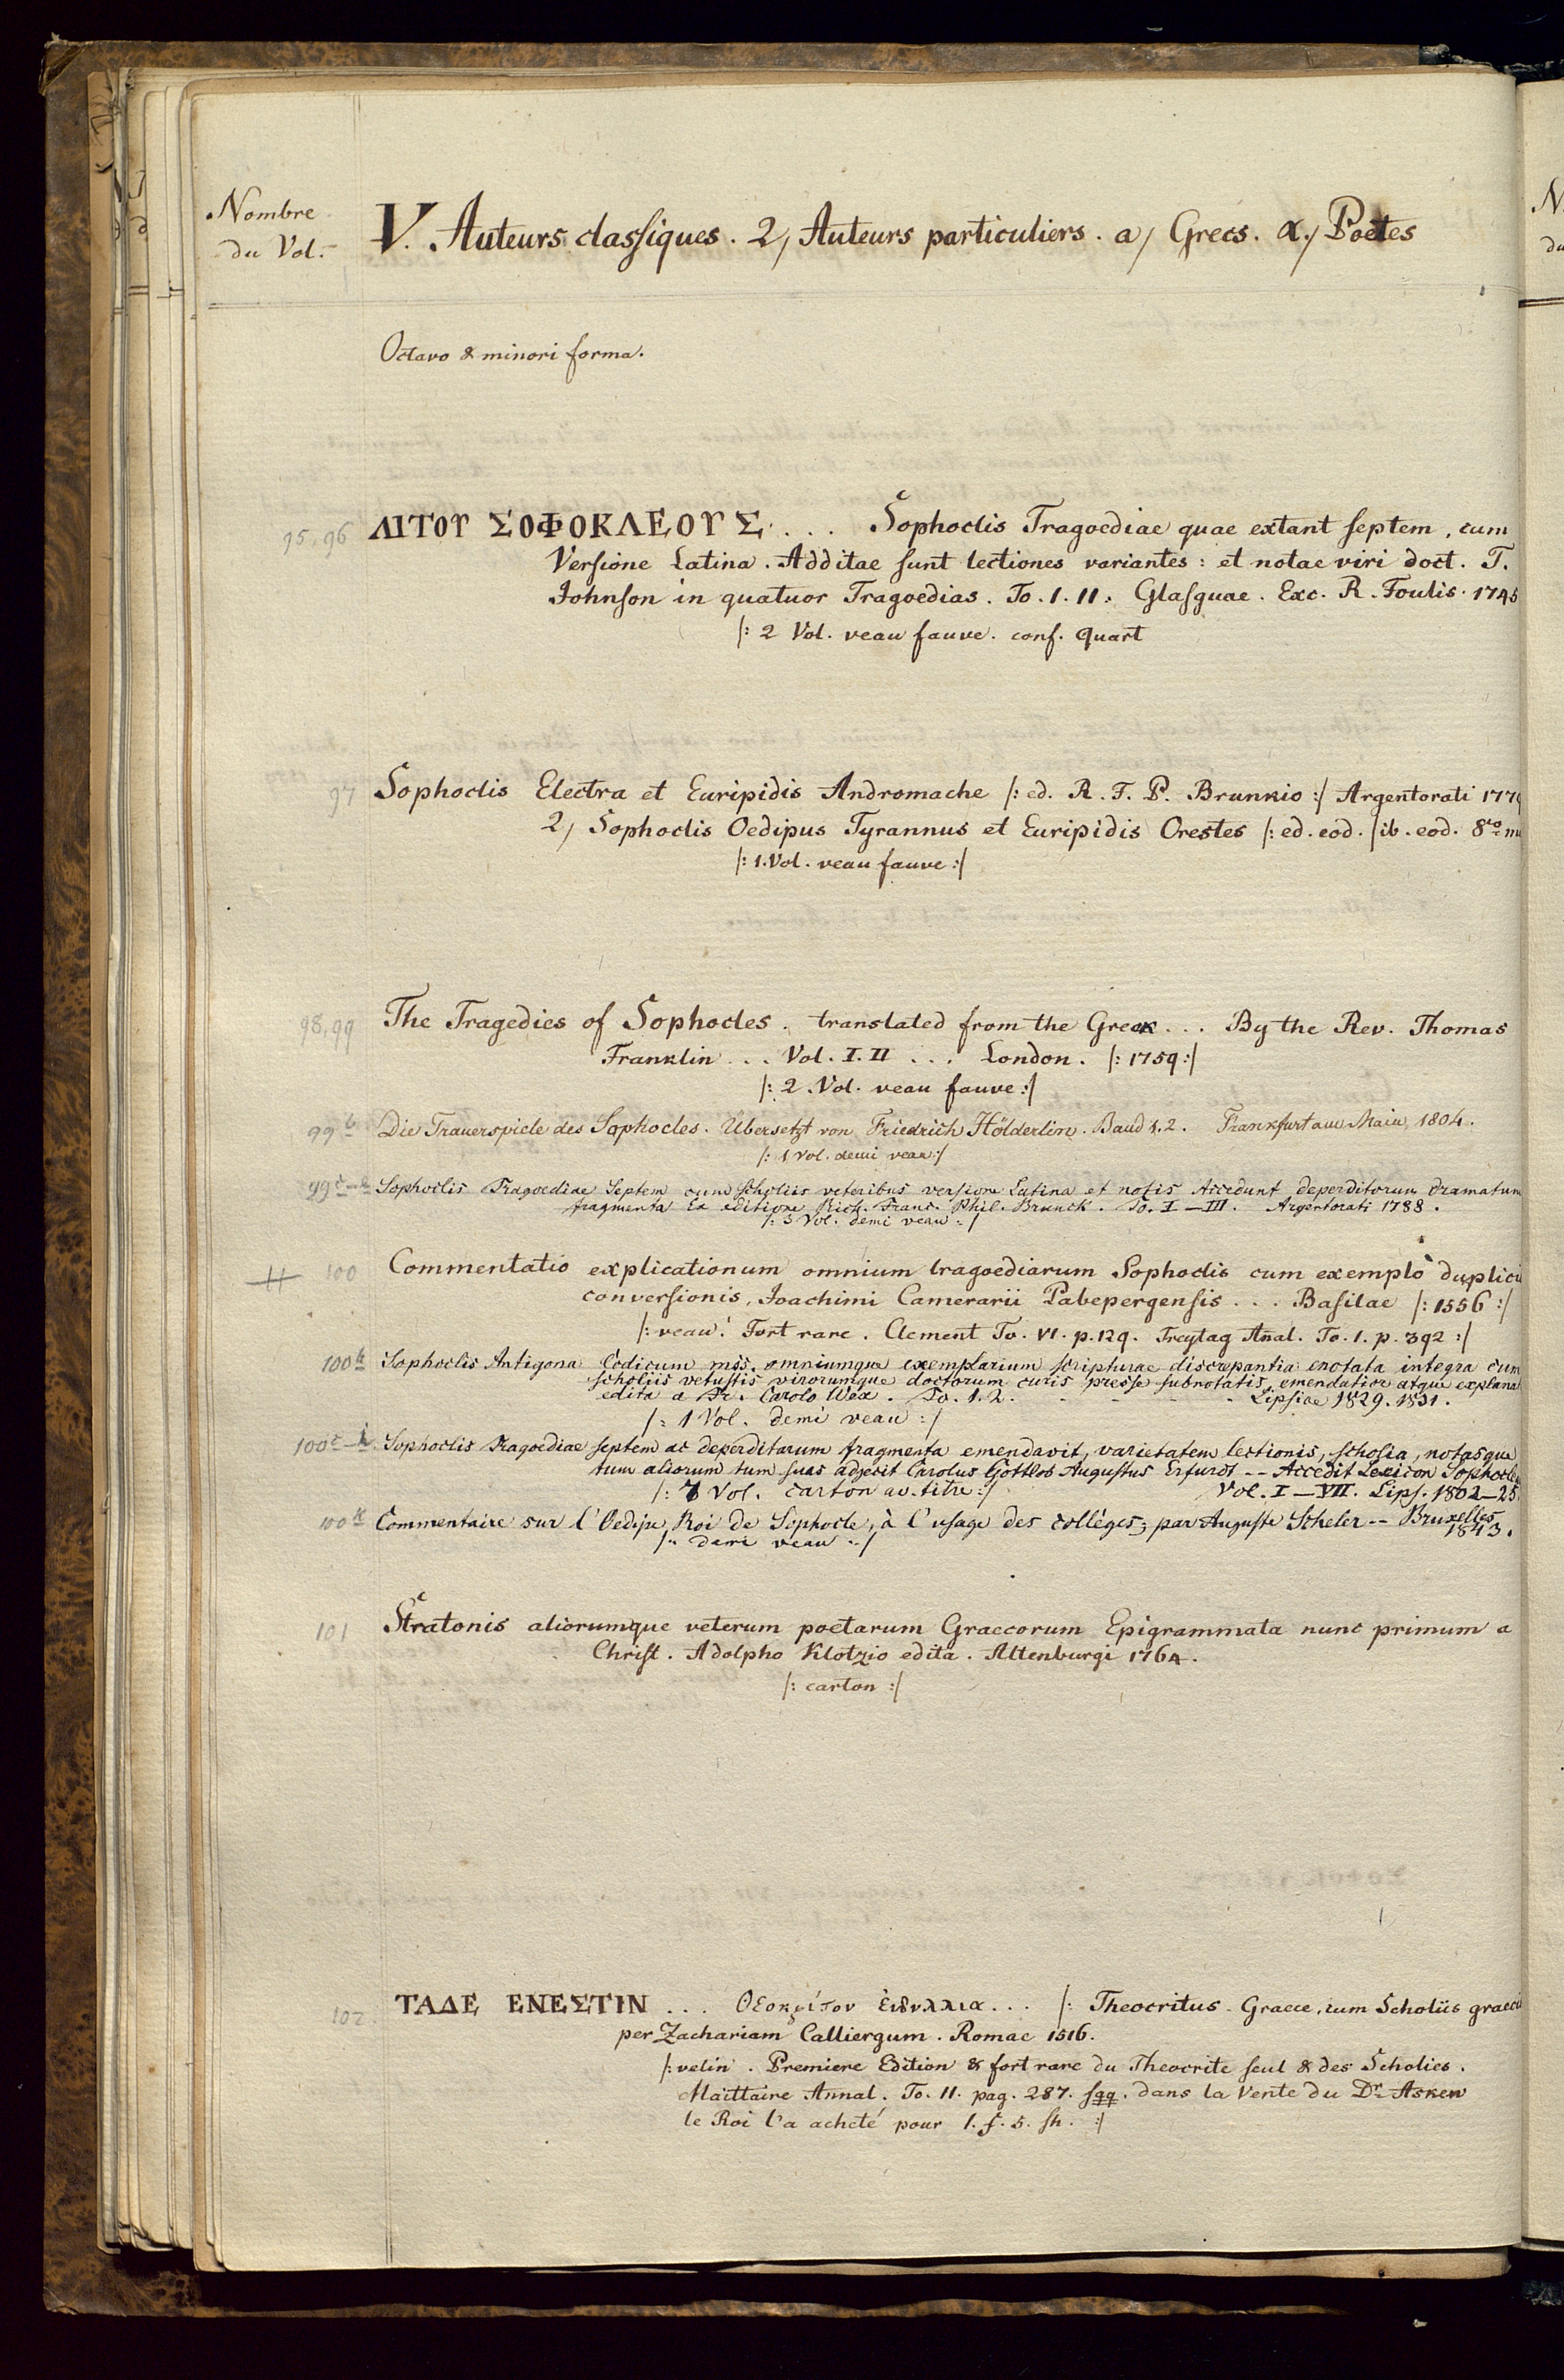 Nombre
du Vol.
V. Auteurs classiques. 2, Auteurs particuliers. a, Grecs. α, Poetes
Octavo & minori forma.
95, 96 ΛΙΤΟΥ ΣΟΦΟΚΛΕΟΥΣ . . . Sophoclis Tragoediae quae extant septem, cum
Versione Latina. Additae sunt lectiones variantes: et notae viri doct. T.
Johnson in quatuor Tragoedias. To. I. II. Glasguae. Exc. R. Foulis. 1745
/: 2 Vol. veau fauve. conf. Quart
97 Sophoclis Electra et Euripidis Andromache /: ed. R. F. P. Brunkio :/ Argentorati 1779
2, Sophoclis Oedipus Tyrannus et Euripidis Orestes /: ed. eod. / ib. eod. 8vo
/: 1. Vol. veau fauve :/
98, 99 The Tragedies of Sophocles. translated from the Greek . . . By the Rev. Thomas
Franklin . . . Vol. I. II . . . London. /: 1759 :/
/: 2. Vol. veau fauve :/
99b Die Trauerspiele des Sophocles. Übersetzt von Friedrich Hölderlin. Band 1. 2. Frankfurt am Main, 1804.
/: 1 Vol. demi veau :/
99c-e Sophoclis Tragoediae Septem cum scholiis veteribus versione Latina et notis Accedunt deperditorum dramatum
fragmenta Ex editione Rich. Franc. Phil. Brunck. To. I – III. Argentorati 1788.
/: 3 Vol. demi veau :/
100 Commentatio explicationum omnium tragoediarum Sophoclis cum exemplo duplicis
conversionis, Joachimi Camerarii Pabepergensis . . . Basilae /: 1556 :/
/: veau. Fort rare. Clement To. VI. p. 129. Freytag Anal. To. I. p. 392 :/
100b Sophoclis Antigona Codicum mss. omniumque exemplarium scripturae discrepantia enotata integra cum
scholiis vetustis virorumque doctorum curis presse subnotatis, emendatior atque explana
edita a Fr. Carolo Wex. To. 1. 2. - - - - - Lipsiae 1829. 1831.
/: 1 Vol. demi veau :/
100c-i Sophoclis Tragoediae septem ac deperditarum fragmenta emendavit, varietatem lectionis, scholia, notasque
tum aliorum tum suas adjecit Carolus Gottlob Augustus Erfurdt -- Accedit Lexicon Sophocle
/: 7 Vol. carton av. titre :/ Vol. I – VII. Lips. 1802–25
100k Commentaire sur l'Oedipe Roi de Sophocle, à l'usage des collèges; par Auguste Scheler -- Bruxelles
1843.
/: demi veau :/
101 Stratonis aliorumque veterum poetarum Graecorum Epigrammata nunc primum a
Christ. Adolpho Klotzio edita. Altenburgi 1764.
/: carton :/
102. ΤΑΔΕ ΕΝΕΣΤΙΝ . . . Θεοκρίτου ἐιδυλλια . . . /: Theocritus. Graece, cum Scholiis graecis
per Zachariam Calliergum. Romae 1516.
/: velin. Premiere Edition & fort rare du Theocrite seul & des Scholies.
Maittaire Annal. To. II. pag. 287. sqq. dans la Vente du Dr Asken
le Roi l'a acheté pour 1. £. 5. sh. :/